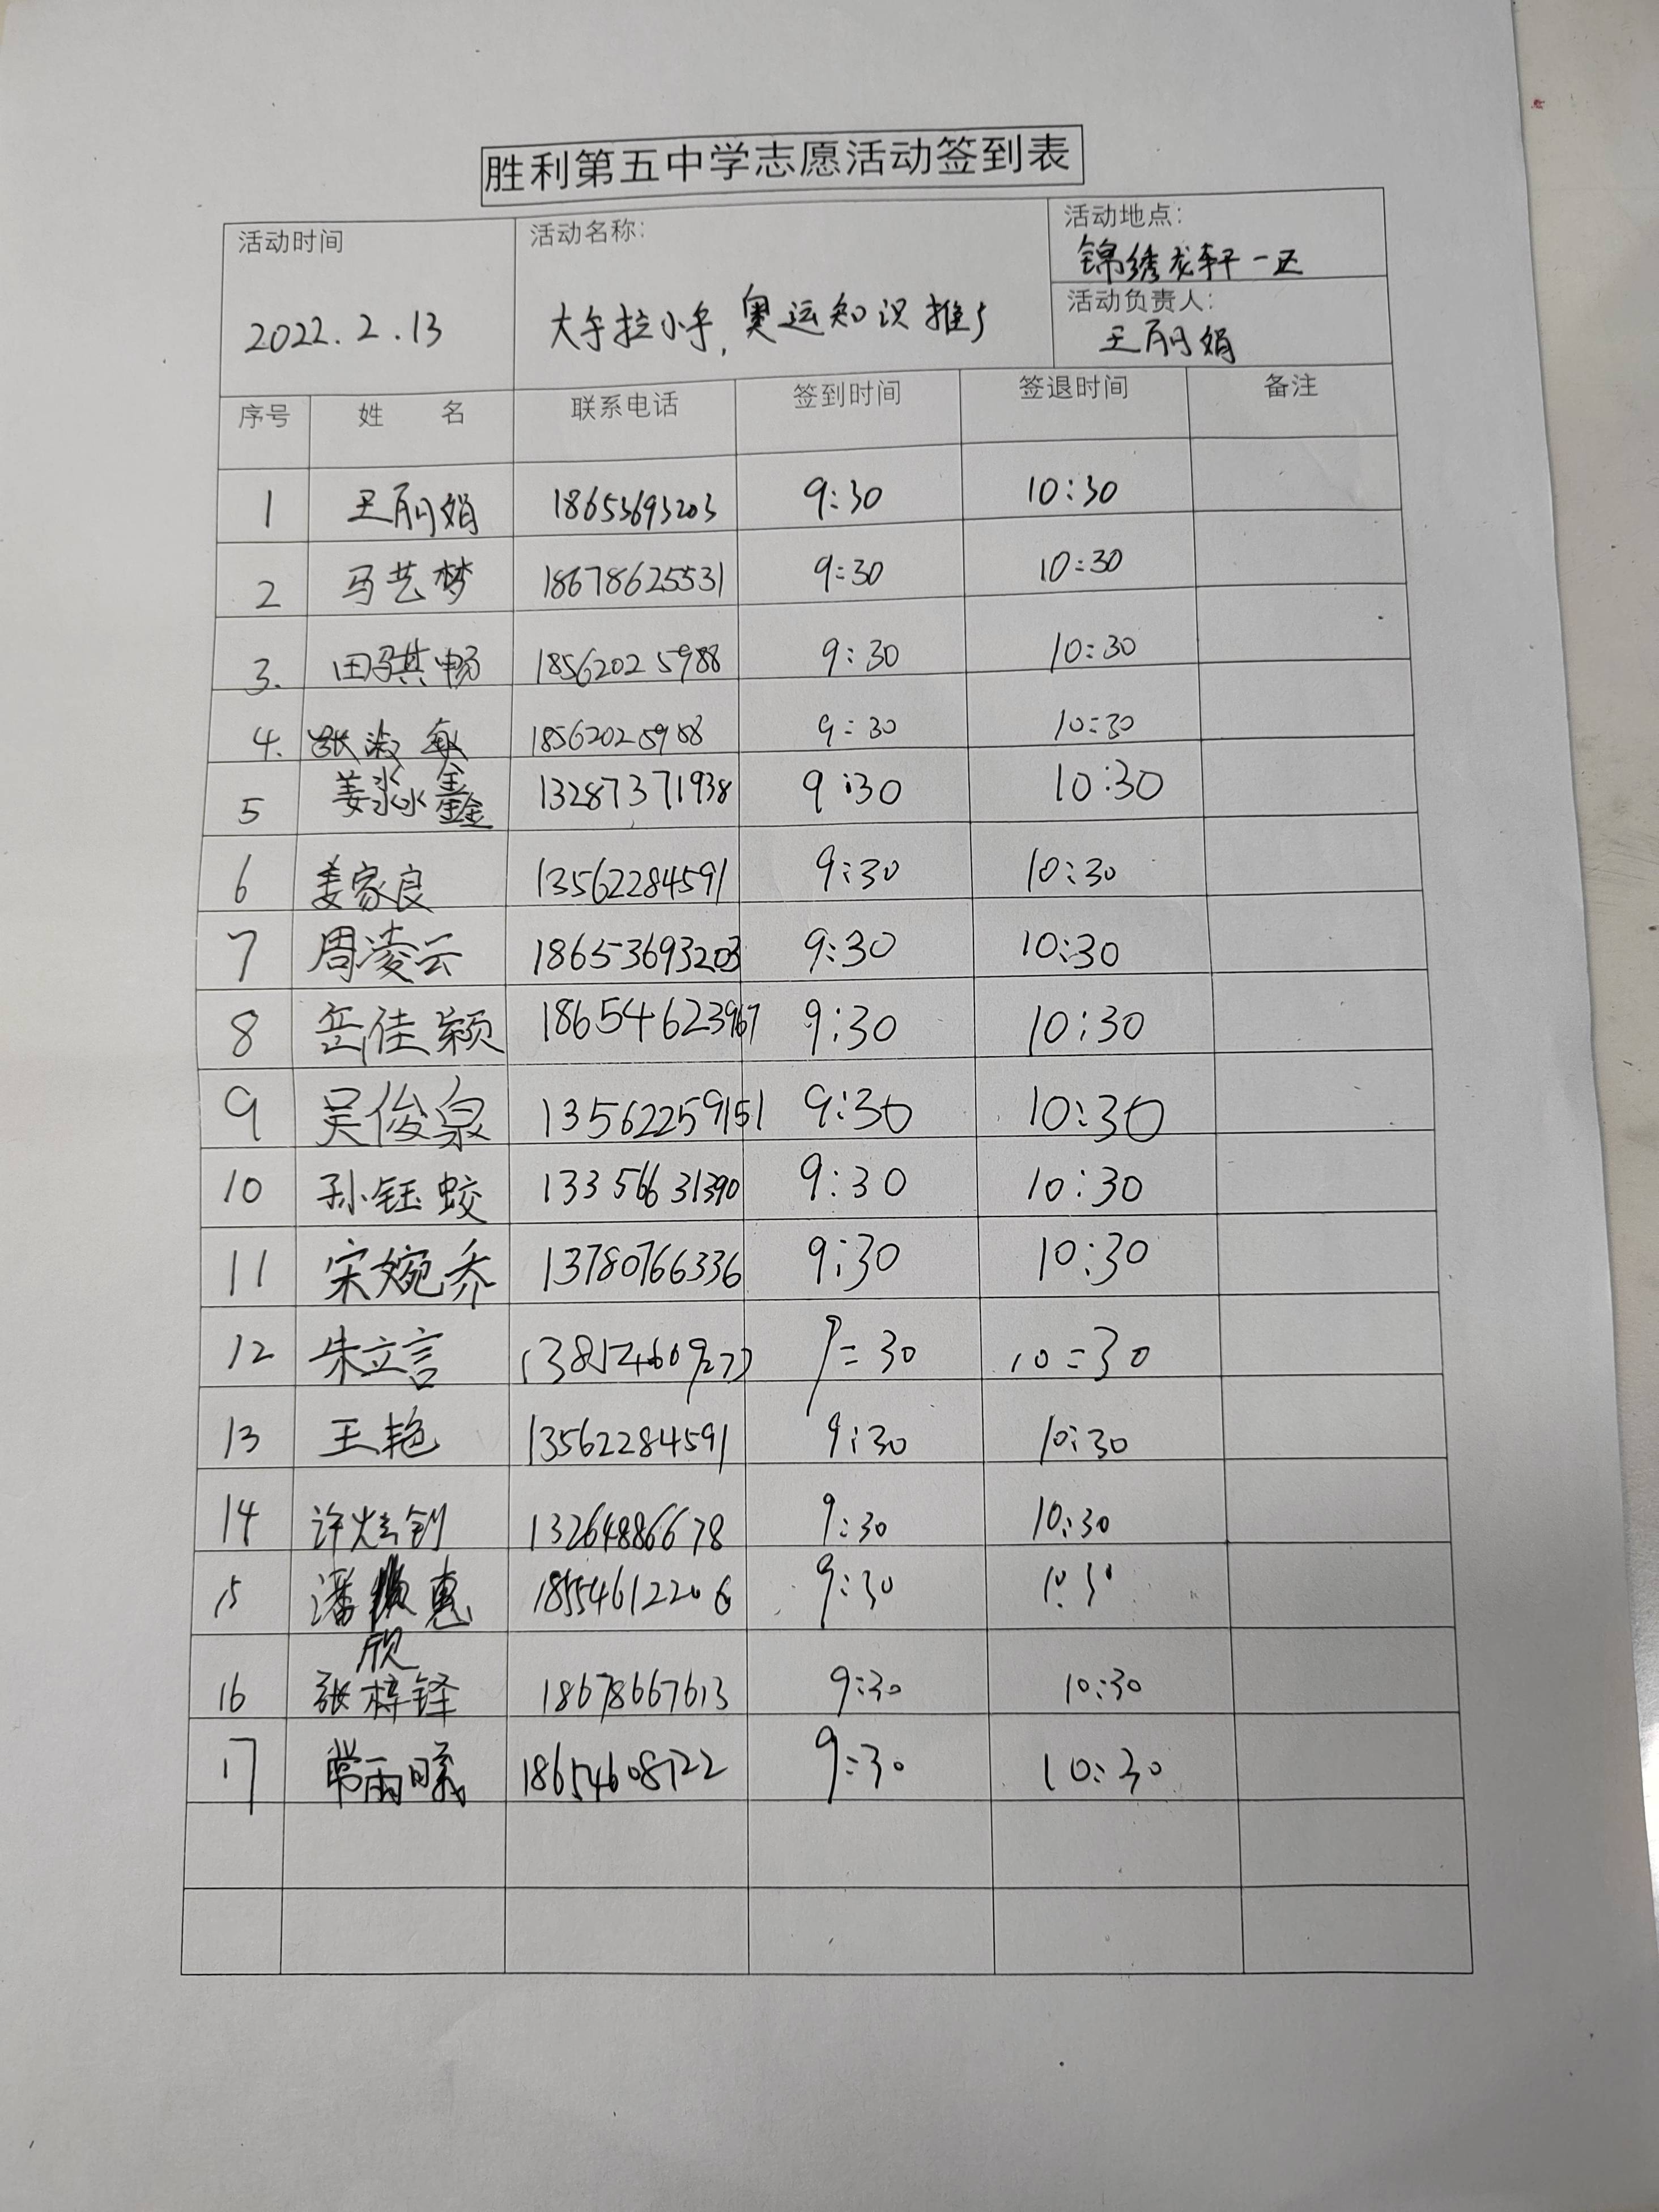 胜利第五中学志愿活动签到表
活动时间 活动名称: 活动地点:
锦绣龙轩一区
2022.2.13 大手拉小手,奥运知识推广 活动负责人:
王丽娟
序号 姓 名 联系电话 签到时间 签退时间 备注
1 王丽娟 18653693203 9:30 10:30
2 马艺梦 18678625531 9:30 10:30
3. 田骐畅 18562025988 9:30 10:30
4. 张淑敏 18562025988 9:30 10:30
5 姜淼鑫 13287371938 9:30 10:30
6 姜家良 13562284591 9:30 10:30
7 周凌云 18653693203 9:30 10:30
8 岳佳颖 18654623967 9:30 10:30
9 吴俊泉 13562259151 9:30 10:30
10 孙钰蛟 13356631390 9:30 10:30
11 宋婉乔 13780766336 9:30 10:30
12 朱立言 9:30 10:30
13 王艳 13562284591 9:30 10:30
14 许炫钊 13264886678 9:30 10:30
15 潘惠 18554612206 9:30 10:30
欣
16 张梓铎 18678667613 9:30 10:30
17 常雨曦 18654608722 9:30 10:30